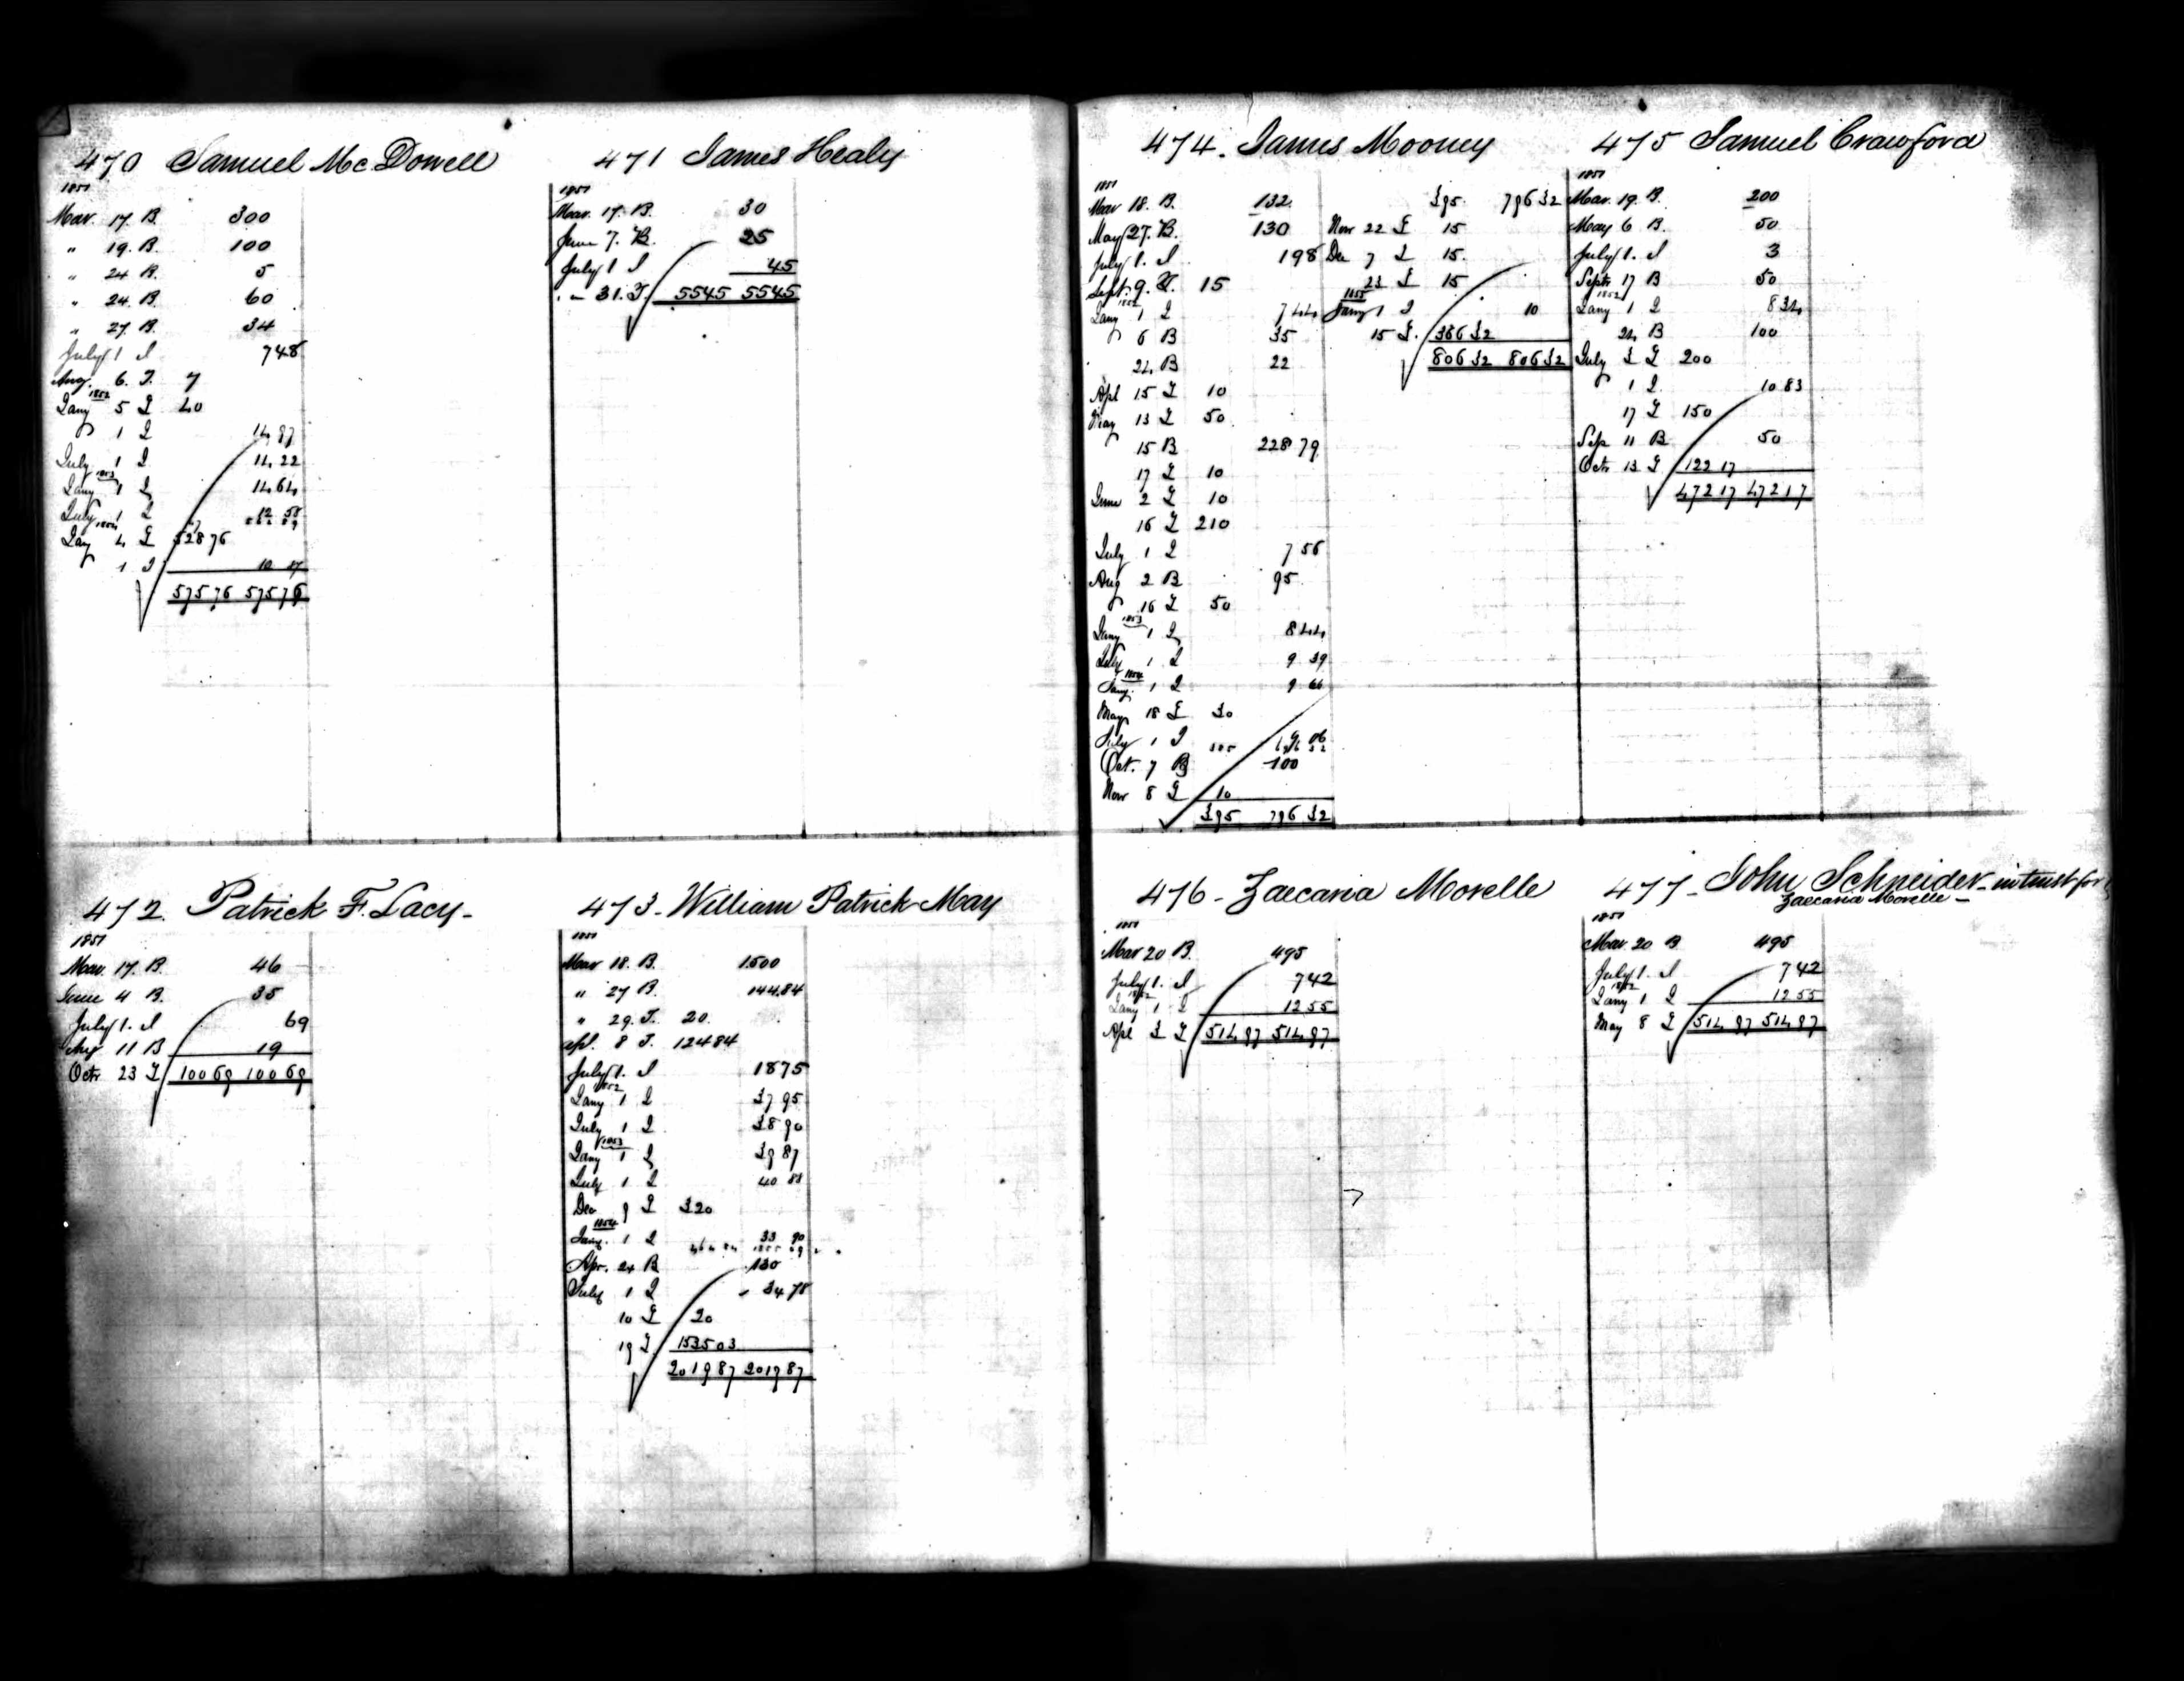 470 Samuel McDowell
1851
Mar. 17. B. 300
" 19. B. 100
" 24 B. 5
" 24. B. 60
" 27 B. 34
July 1 I 7 48
Aug. 6. T. 7
1852
Jany 5 T 40
1 I 14 97
July 1 I 14 22
1853
Jany 1 I 14 64
July 1 I 12 58
1854
Jany 4 T 528 76
1 I 10 87
575 76 575 76
471 James Healy
1851
Mar. 17. B. 30
June 7. B. 25
July 1 I 45
" 31. T. 55 45 55 45
472. Patrick F. Lacy -
1851
Mar. 17. B. 46
June 4 B. 35
July 1. I 69
Aug 11 B 19
Octr 23 T 100 69 100 69
473 - William Patrick May
1851
Mar 18. B. 1500
" 27 B. 144.84
" 29. T. 20.
Apl. 8 T. 124 84
July 1. I 18 75
1852
Jany 1 I 37 95
July 1 I 38 90
1853
Jany 1 I 39 87
July 1 I 40 88
Dec 9 T 320
1854
Jany. 1 I 33 90
Apr. 24 B 130
July 1 I 34 78
10 T 20
19 T 1535 03
2019 87 2019 87
474. James Mooney
1851
Mar 18. B. 132
May 27. B. 130
July 1. I 1 98
Sept. 9. T. 15
1852
Jany 1 I 7 44
6 B 35
24 B 22
Apl 15 T 10
May 13 T 50
15 B 228 79
17 T 10
June 2 T 10
16 T 210
July 1 I 7 56
Aug 2 B 95
16 T 50
1853
Jany 1 I 8 44
July 1 I 9 39
1854
Jany. 1 I 9 66
May 18 T 30
July 1 I 9 06
Oct. 7 B 100
Nov 8 T 10
395 796 32
395 796 32
Nov 22 T 15
Dec 7 T 15.
23 T 15
1855
Jany 1 I 10
15 T. 366 32
806 32 806 32
475 Samuel Crawford
1851
Mar. 19. B. 200
May 6 B. 50
July 1. I 3
Septr 17 B 50
1852
Jany 1 I 8 34
24 B 100
July 3 T 200
1 I 10 83
17 T 150
Sep 11 B 50
Octr 13 T 122 17
472 17 472 17
476 - Zaecaria Morelle
1851
Mar 20 B. 495
July 1. I 7 42
1852
Jany 1 I 12 55
Apl 3 T 514 97 514 97
477 - John Schneider - in trust for
Zaecaria Morelle -
1851
Mar. 20 B 495
July 1. I 7 42
1852
Jany 1 I 12 55
May 8 T 514 97 514 97